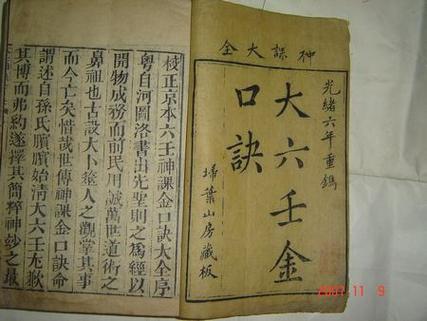 神課大全
光緒六年重鐫
大六壬金
口訣
掃葉山房藏板
校正京本六壬神課金口訣大全序
粵自河圖洛書出先聖則之為經以
開物成務而前民用誠萬世道術之
鼻祖也古設大卜筮人之觀掌其事
而今亡矣惜哉世傳神課金口訣命
謂述自孫氏臏臏始清大六壬尤歉
其博而弗約遂擇其簡粹神妙之最
2007.11 9